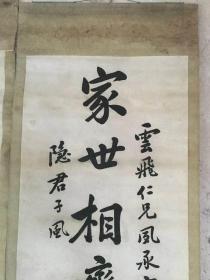 雲飛仁兄夙承
家世相
隐君子風